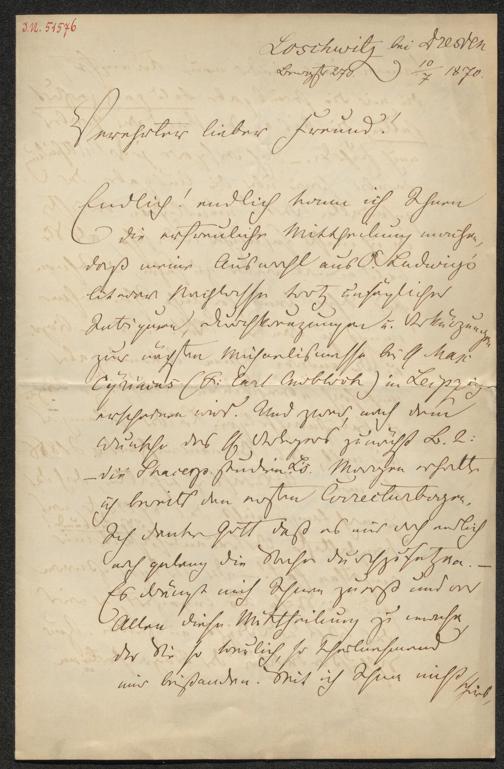 J.N. 51576
Loschwitz bei Dresden
10/7 1870.
Verehrter lieber Freund!
Endlich! endlich kann ich Ihnen
die erfreuliche Mittheilung machen,
daß meine Auswahl aus O. Ludwigs
literar Nachlasse trotz unsäglicher
Intriguen, Durchkreuzungen u. Verkürzungen
zur nächsten Michaelismesse bei H Max
Cyriacus (Fi: Carl Cnobloch) in Leipzig
erscheinen wird. Und zwar, nach dem
Wunsche des H Verlegers zunächst B. 2:
– die Shakesp. studien Ls. Morgen erhalte
ich bereits den ersten Correcturbogen.
Ich danke Gott daß es mir doch endlich
noch gelang die Sache durchzusetzen. –
Es drängt mich Ihnen zuerst und vor
Allen diese Mittheilung zu machen,
der Sie so treulich, so theilnehmend
mir beistanden. Seit ich Ihnen nicht
schrieb,